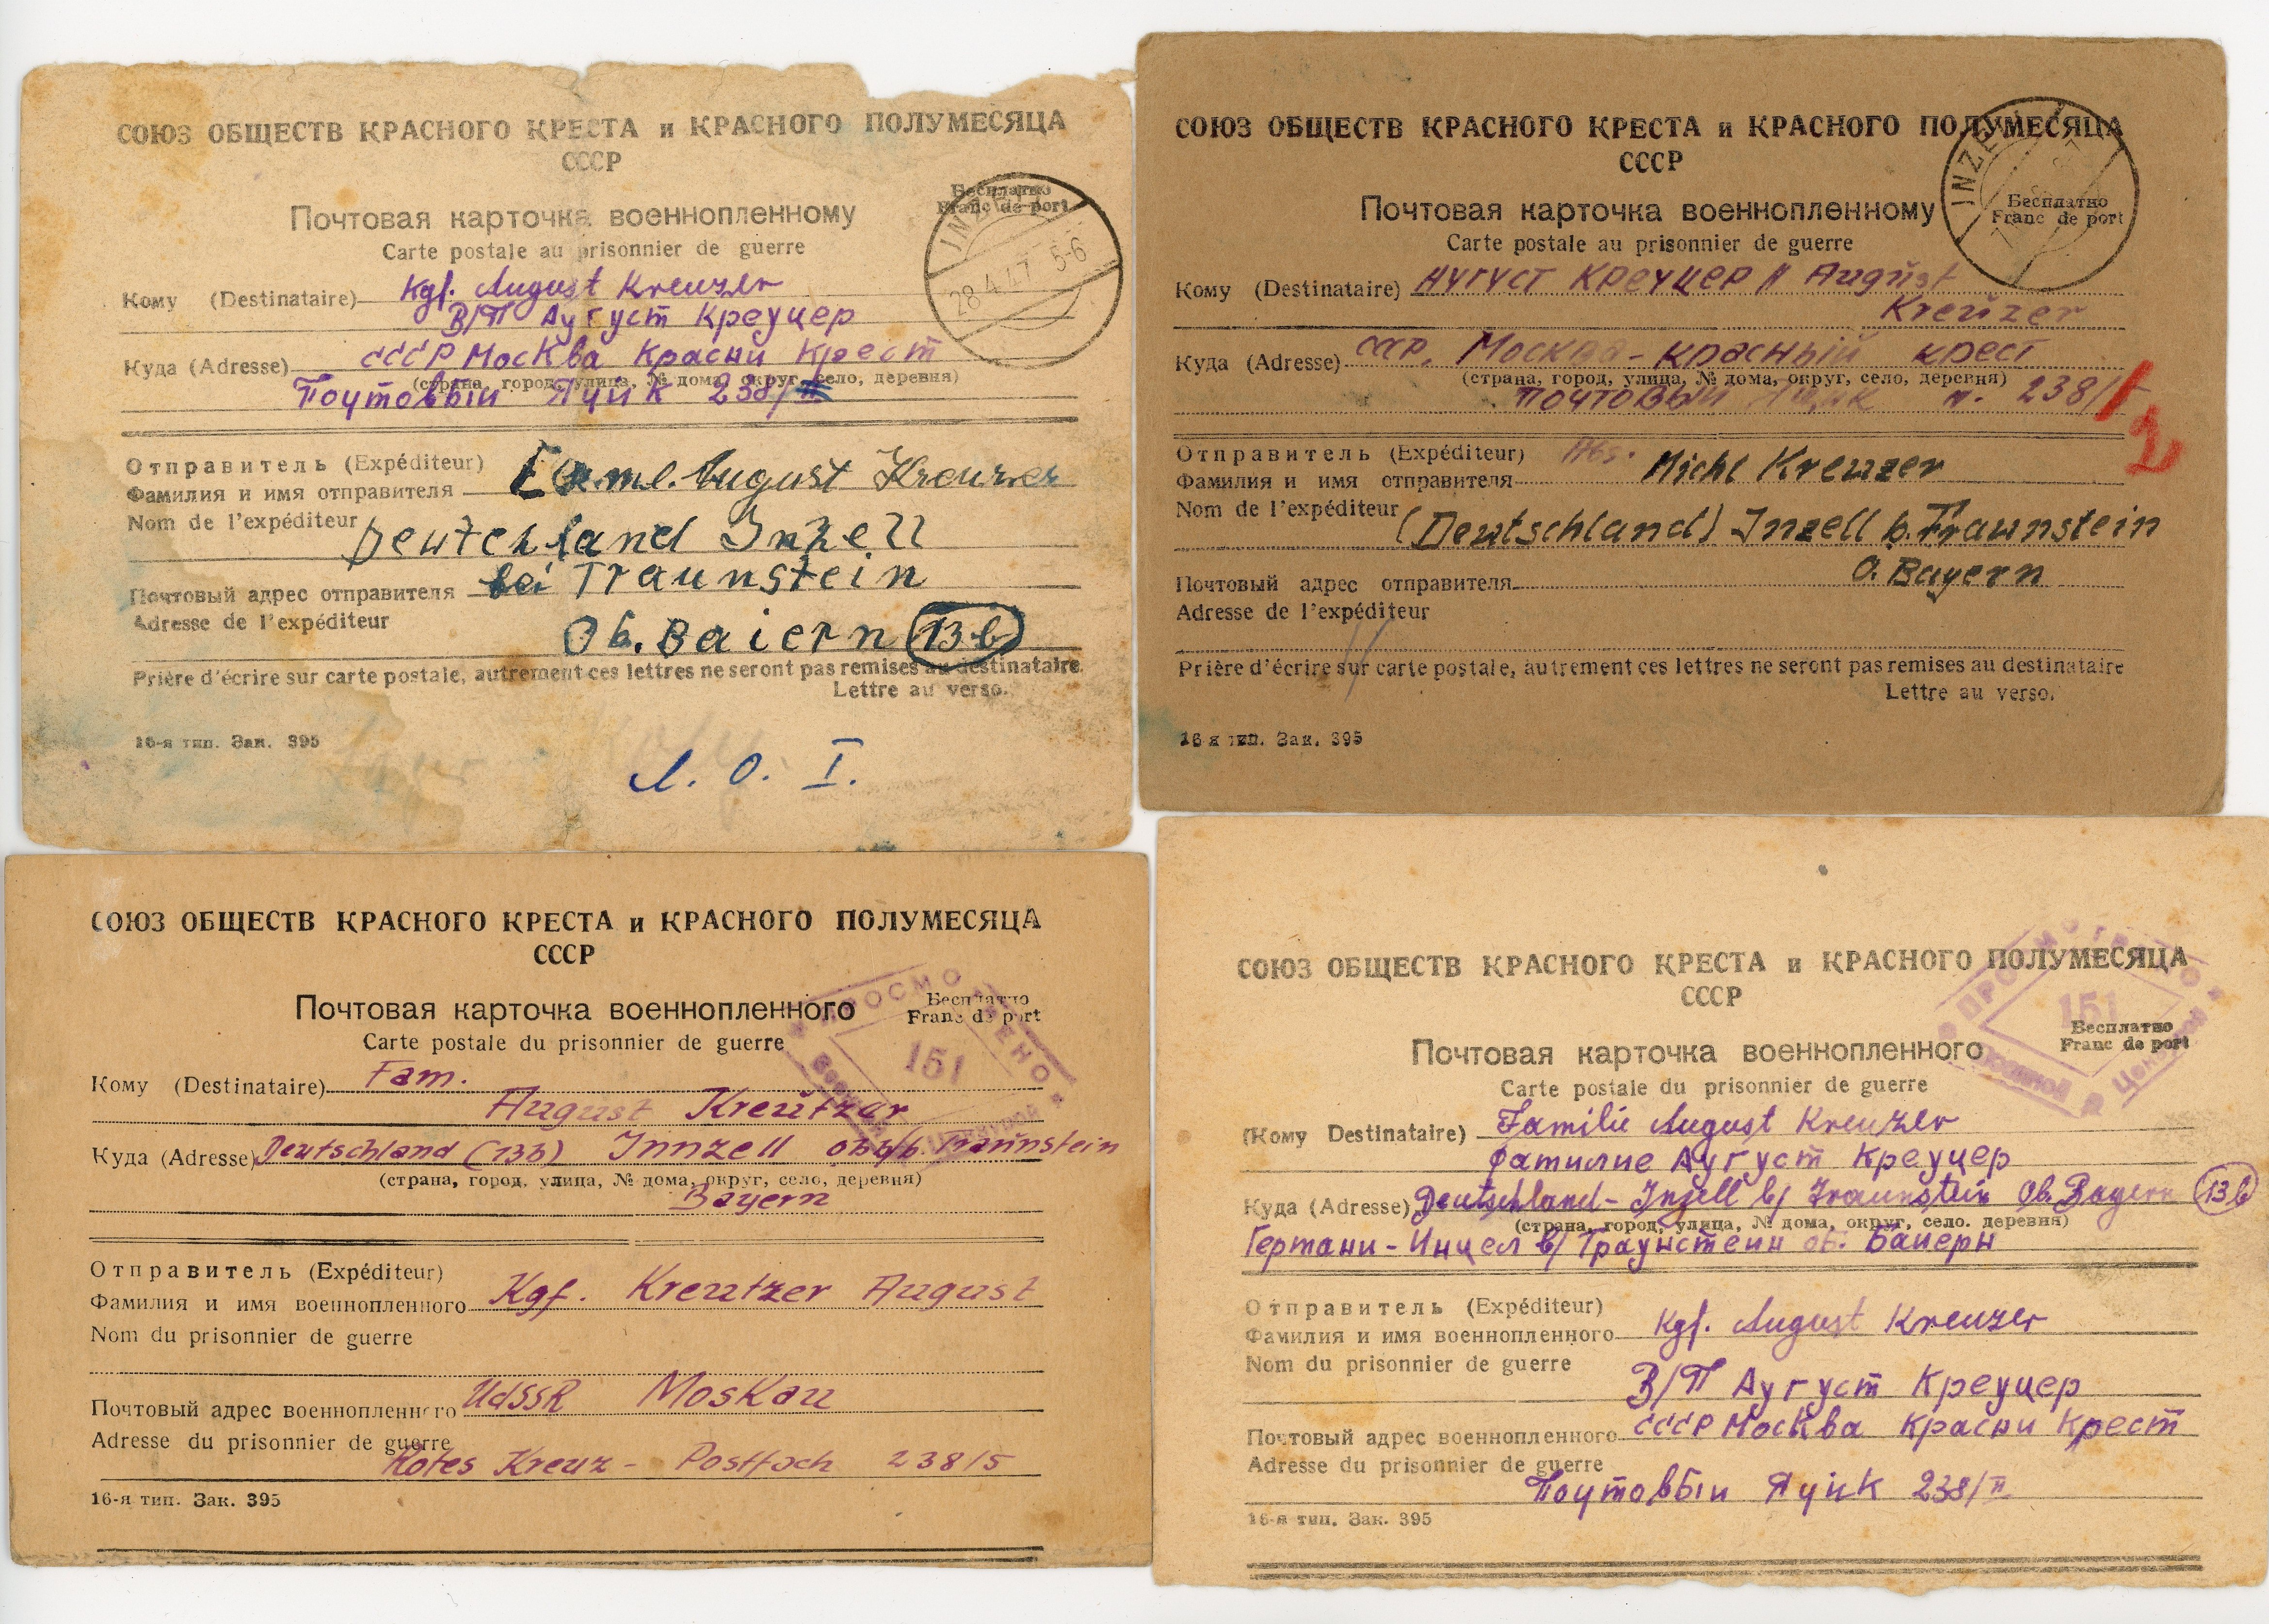 СОЮЗ ОБЩЕСТВ КРАСНОГО КРЕСТА и КРАСНОГО ПОЛУМЕСЯЦА
СССР
Бесплатно
Franc de port
INZELL
28 4 47 5-6
Почтовая карточка военнопленному
Carte postale au prisonnier de guerre
Кому (Destinataire) Kgf. August Kreuzer
В/П Аугуст Креуцер
Куда (Adresse) СССР Москва Красни Крест
(страна, город, улица, № дома, округ, село, деревня)
Поутовьıи Яуик 238/
Отправитель (Expéditeur)
Фамилия и имя отправителя August Kreuzer
Nom de l'expéditeur
Deutchland Inzell
bei Traunstein
Почтовый адрес отправителя
Adresse de l'expéditeur
Ob. Baiern 13b
Prière d'écrire sur carte postale, autrement ces lettres ne seront pas remises au destinataire.
Lettre au verso.
16-я тип. Зак. 395
Л. О. I.
СОЮЗ ОБЩЕСТВ КРАСНОГО КРЕСТА и КРАСНОГО ПОЛУМЕСЯЦА
СССР
INZE
Бесплатно
Franc de port
Почтовая карточка военнопленному
Carte postale au prisonnier de guerre
Кому (Destinataire) Аугуст Креуцер August
Kreuzer
Куда (Adresse) СССР. Москва - красный крест
(страна, город, улица, № дома, округ, село, деревня)
почтовый 238/
2
Отправитель (Expéditeur)
Фамилия и имя отправителя Michl Kreuzer
Nom de l'expéditeur
(Deutschland) Inzell b. Traunstein
O. Bayern
Почтовый адрес отправителя
Adresse de l'expéditeur
Prière d'écrire sur carte postale, autrement ces lettres ne seront pas remises au destinataire
Lettre au verso.
16 я тип. Зак. 395
СОЮЗ ОБЩЕСТВ КРАСНОГО КРЕСТА и КРАСНОГО ПОЛУМЕСЯЦА
СССР
Почтовая карточка военнопленного
Бесплатно
Franc de port
Carte postale du prisonnier de guerre
ПРОСМОТРЕНО
151
Кому (Destinataire) Fam.
August Kreutzer
Куда (Adresse) Deutschland (13b) Innzell Obb/b. Traunstein
(страна, город, улица, № дома, округ, село, деревня)
Bayern
Отправитель (Expéditeur)
Фамилия и имя военнопленного Kgf. Kreutzer August
Nom du prisonnier de guerre
Почтовый адрес военнопленного UdSSR Moskau
Adresse du prisonnier de guerre
Rotes Kreuz - Postfach 238/5
16-я тип. Зак. 395
СОЮЗ ОБЩЕСТВ КРАСНОГО КРЕСТА и КРАСНОГО ПОЛУМЕСЯЦА
СССР
ПРОСМОТРЕНО
151
Бесплатно
Franc de port
Почтовая карточка военнопленного
Carte postale du prisonnier de guerre
(Кому Destinataire) Familie August Kreuzer
Фатилие Аугуст Креуцер
Куда (Adresse) Deutschland - Inzell b/ Traunstein Ob. Bayern 13b
(страна, город, улица, № дома, округ, село. деревня)
Гертани - Инцел в/ Траунстеин об. Баиерн
Отправитель (Expéditeur)
Фамилия и имя военнопленного Kgf. August Kreuzer
Nom du prisonnier de guerre
В/П Аугуст Креуцер
Почтовый адрес военнопленного СССР Москва Красни Крест
Adresse du prisonnier de guerre
Поутовьıи Яуик 238/II
16-я тип. Зак. 395